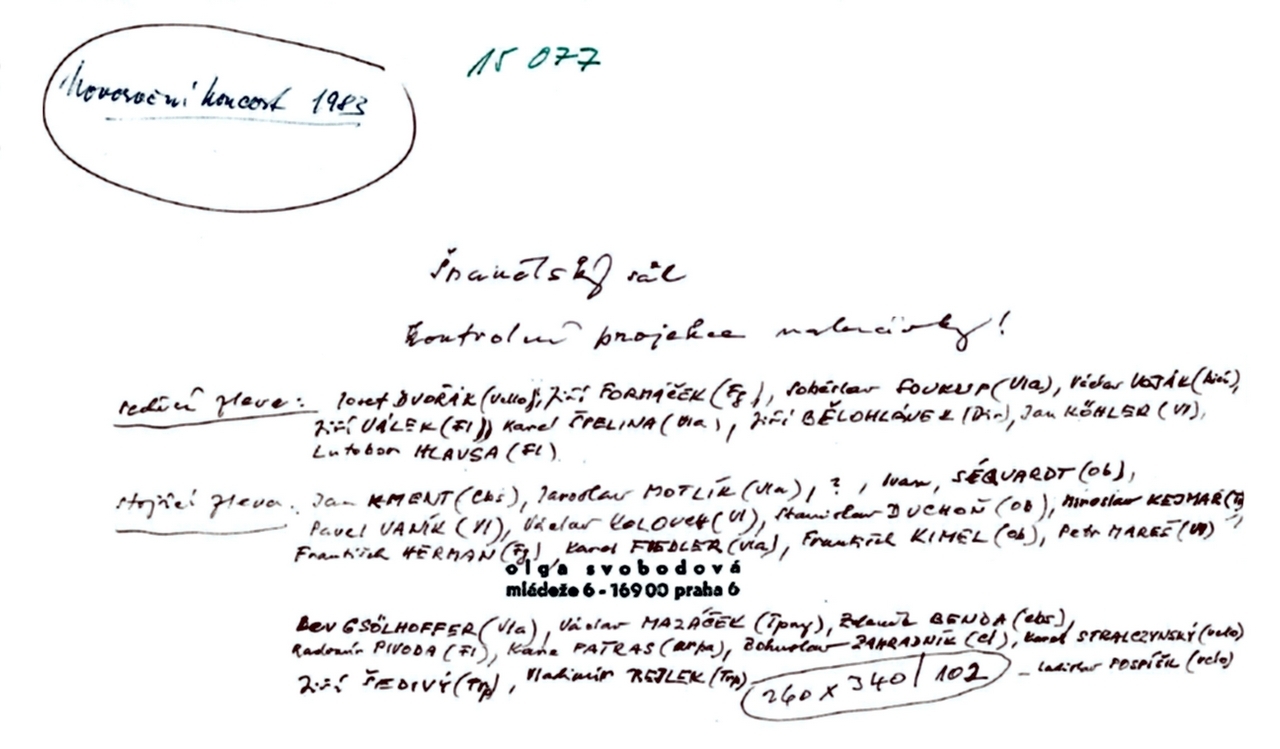 Novoroční koncert 1983
15 077
Španělský sál
Kontrolní projekce nahrávky!
sedící zleva: Josef DVOŘÁK (vello), Jiří FORMÁČEK (Fg), Soběslav SOUKUP (Vla), Václav VOJÁK
Jiří VÁLEK (Fl), Karel ŠPELINA (Vla), Jiří BĚLOHLÁVEK (Dir), Jan KÖHLER (Vl),
Lutobor HLAVSA (Fl)
stojící zleva: Jan KMENT (Cbs), Jaroslav MOTLÍK (Vla), ?, Ivan, SÉQUARDT (ob),
Pavel VANÍK (Vl), Václav KOLOUCH (Vl), Stanislav DUCHOŇ (ob), Miroslav KEJMAR
František HERMAN (Fg), Karel FIEDLER (Vla), František KIMEL (ob), Petr MAREŠ (Vl)
olga svobodová
mládeže 6 - 169 00 praha 6
GSÖLHOFFER (Vla), Václav MAZÁČEK (Tpny), Zdeněk BENDA (cbs),
Radomír PIVODA (Fl), Karel PATRAS (arpa), Bohuslav ZAHRADNÍK (cl), Karel STRALCZYNSKÝ (velo)
Jiří ŠEDIVÝ (Trp), Vladimír REJLEK (Trp) – Ladislav POSPÍŠIL (velo)
260 x 340 / 102